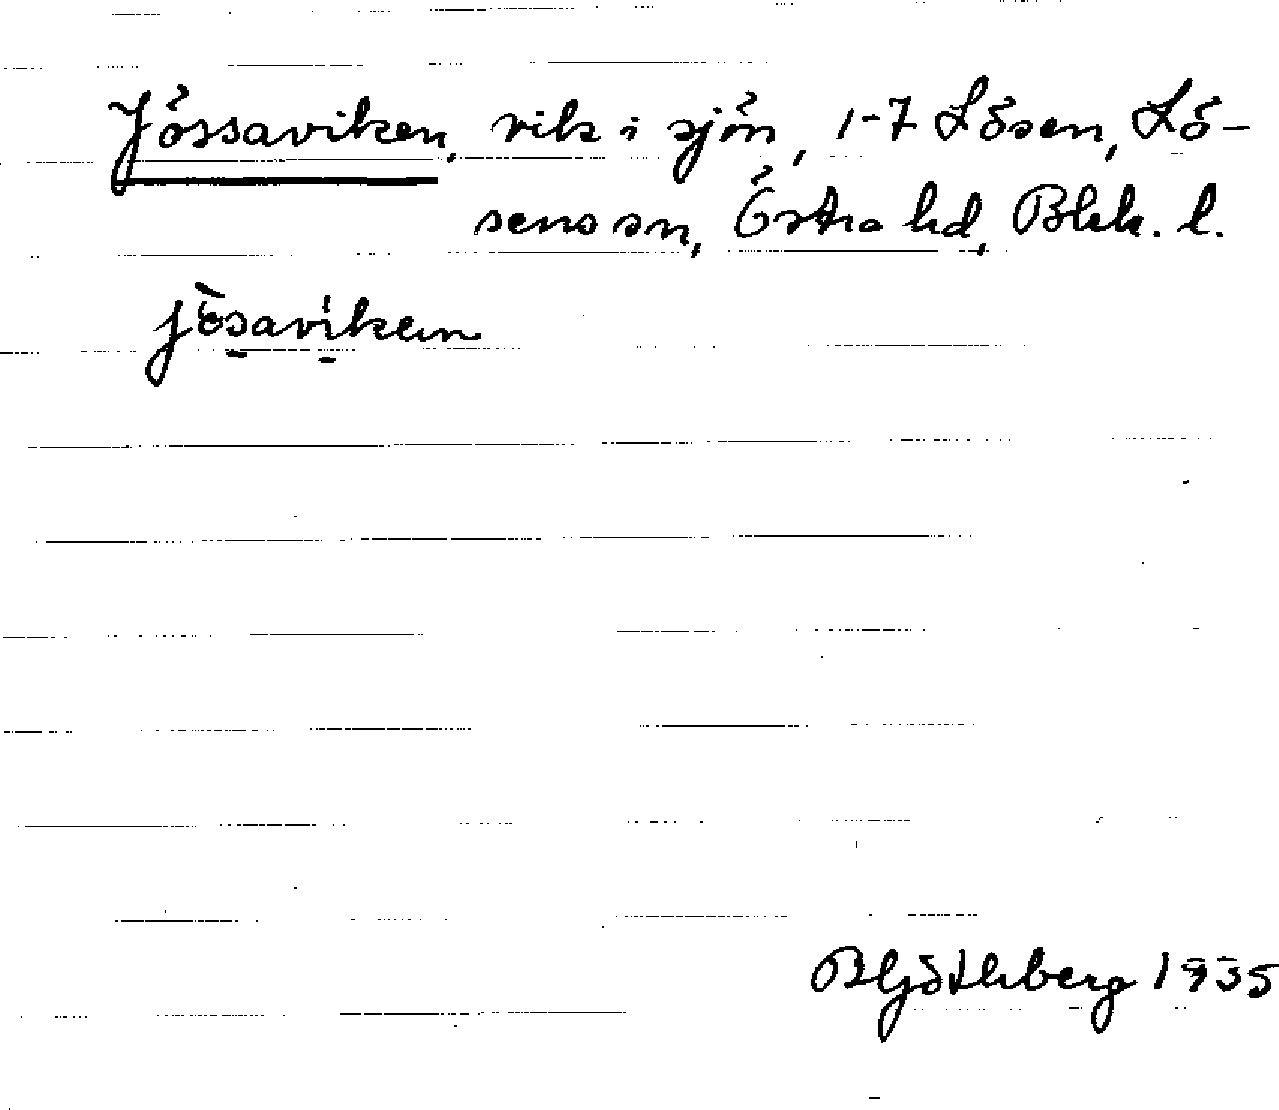 Jössaviken, vik i sjön, 1-7 Lösen, Lö-
sens sn, Östra hd, Blek. l.
jösaviken
B Götlberg 1935